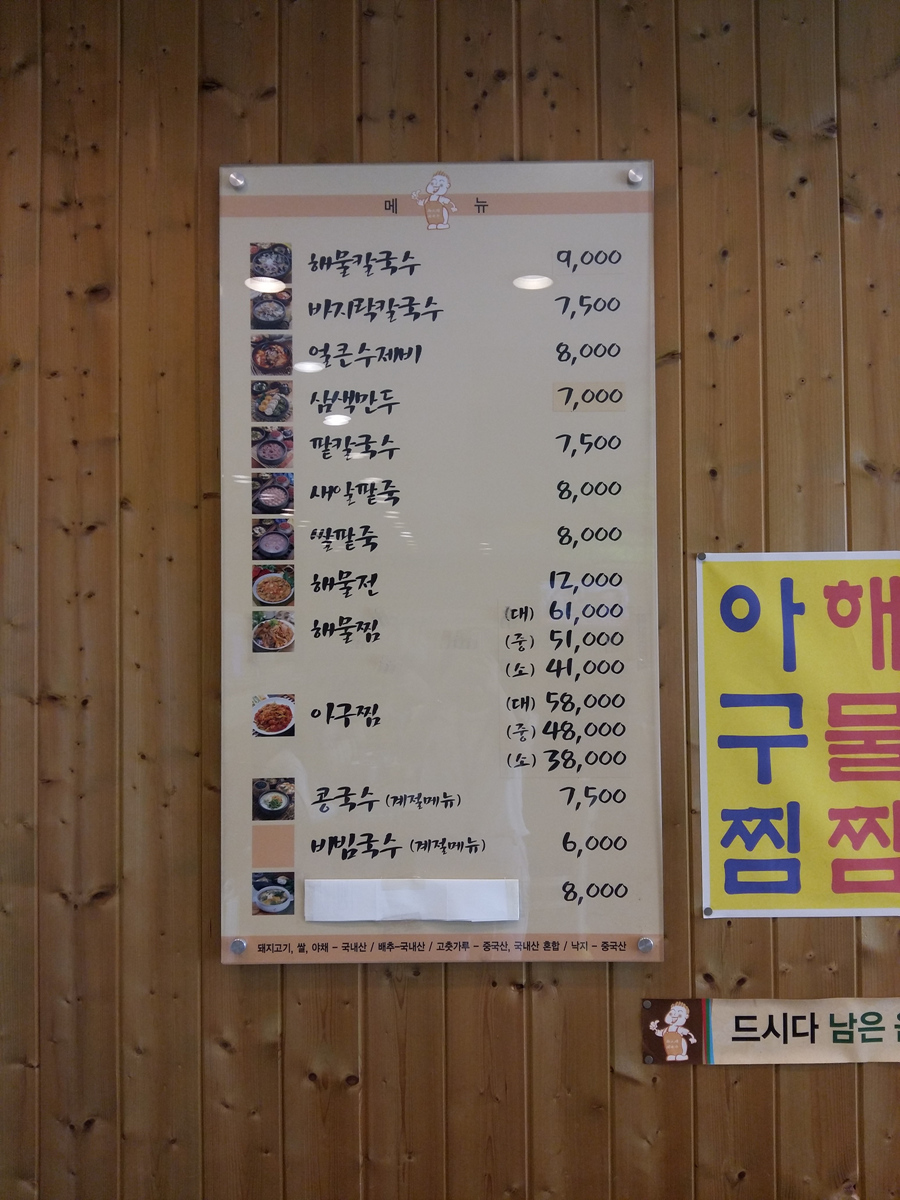 메 뉴
해물칼국수 9,000
바지락칼국수 7,500
얼큰수제비 8,000
삼색만두 7,000
팥칼국수 7,500
새알팥죽 8,000
쌀팥죽 8,000
해물전 12,000
해물찜 (대) 61,000
(중) 51,000
(소) 41,000
아구찜 (대) 58,000
(중) 48,000
(소) 38,000
콩국수 (계절메뉴) 7,500
비빔국수 (계절메뉴) 6,000
8,000
돼지고기, 쌀, 야채 - 국내산 / 배추-국내산 / 고춧가루 - 중국산, 국내산 혼합 / 낙지 - 중국산
아구찜
해물찜
드시다 남은